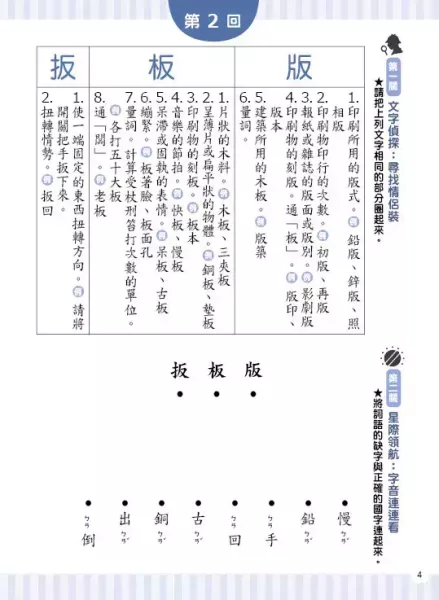 第2回
第一關 文字偵探：尋找情侶裝
★請把上列文字相同的部分圈起來。
版
1.印刷所用的版式。例 鉛版、鋅版、照
相版
2.印刷物印行的次數。例 初版、再版
3.報紙或雜誌的版面或版別。例 影劇版
4.印刷物的刻版。通「板」。例 版印、
版本
5.建築所用的木板。例 版築
6.量詞。
板
1.片狀的木料。例 木板、三夾板
2.呈薄片或扁平狀的物體。例 銅板、墊板
3.印刷物的刻板。例 板本
4.音樂的節拍。例 快板、慢板
5.呆滯或固執的表情。例 呆板、古板
6.繃緊。例 板著臉、板面孔
7.量詞。計算受杖刑笞打次數的單位。
例 各打五十大板
8.通「闆」。例 老板
扳
1.使一端固定的東西扭轉方向。例 請將
開關把手扳下來。
2.扭轉情勢。例 扳回
第二關 星際領航：字音連連看
★將詞語的缺字與正確的國字連起來。
版
板
扳
慢ㄅㄢˇ
鉛ㄅㄢˇ
ㄅㄢ手
ㄅㄢ回
古ㄅㄢˇ
銅ㄅㄢˇ
出ㄅㄢˇ
ㄅㄢ倒
4